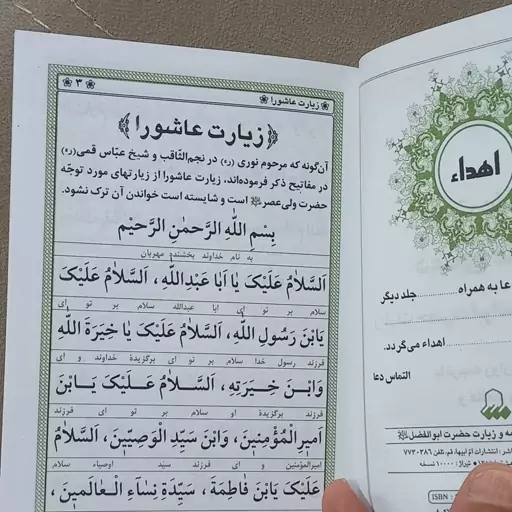 زیارت عاشورا
۳
زیارت عاشورا
آن‌گونه که مرحوم نوری (ره) در نجم‌الثّاقب و شیخ عبّاس قمی(ره)
در مفاتیح ذکر فرموده‌اند، زیارت عاشورا از زیارتهای مورد توجّه
حضرت ولی‌عصر است و شایسته است خواندن آن ترک نشود.
بِسْمِ اللهِ الرَّحمٰنِ الرَّحیْم
به نام خداوند بخشنده مهربان
اَلسَّلاٰمُ عَلَیْکَ یٰا اَبٰا عَبْدِاللّٰهِ، اَلسَّلاٰمُ عَلَیْکَ
سلام بر تو ای ابا عبدالله سلام بر تو ای
یَابْنَ رَسُولِ اللّٰهِ، اَلسَّلاٰمُ عَلَیْکَ یٰا خِیَرَةَ اللّٰهِ
فرزند رسول خدا سلام بر تو ای برگزیدهٔ خداوند و ای
وَابْنَ خِیَرَتِهِ، اَلسَّلاٰمُ عَلَیْکَ یَابْنَ
فرزند برگزیدهٔ او سلام بر تو ای فرزند
اَمیرِالْمُؤْمِنینَ، وَابْنَ سَیِّدِ الْوَصِیّینَ، اَلسَّلاٰمُ
امیرالمؤمنین و ای فرزند سید اوصیاء سلام
عَلَیْکَ یَابْنَ فٰاطِمَةَ، سَیِّدَةِ نِسٰاءِ الْعٰالَمینَ،
اهداء
عا به همراه .......... جلد دیگر
اهداء می‌گردد.
التماس دعا
مه و زیارت حضرت ابوالفضل
شر: انتشارات اُمّ اَبیها، قم، تلفن ۷۷۳۰۳۸۶
تیراژ: ۱۰۰۰۰ نسخه
ISBN :